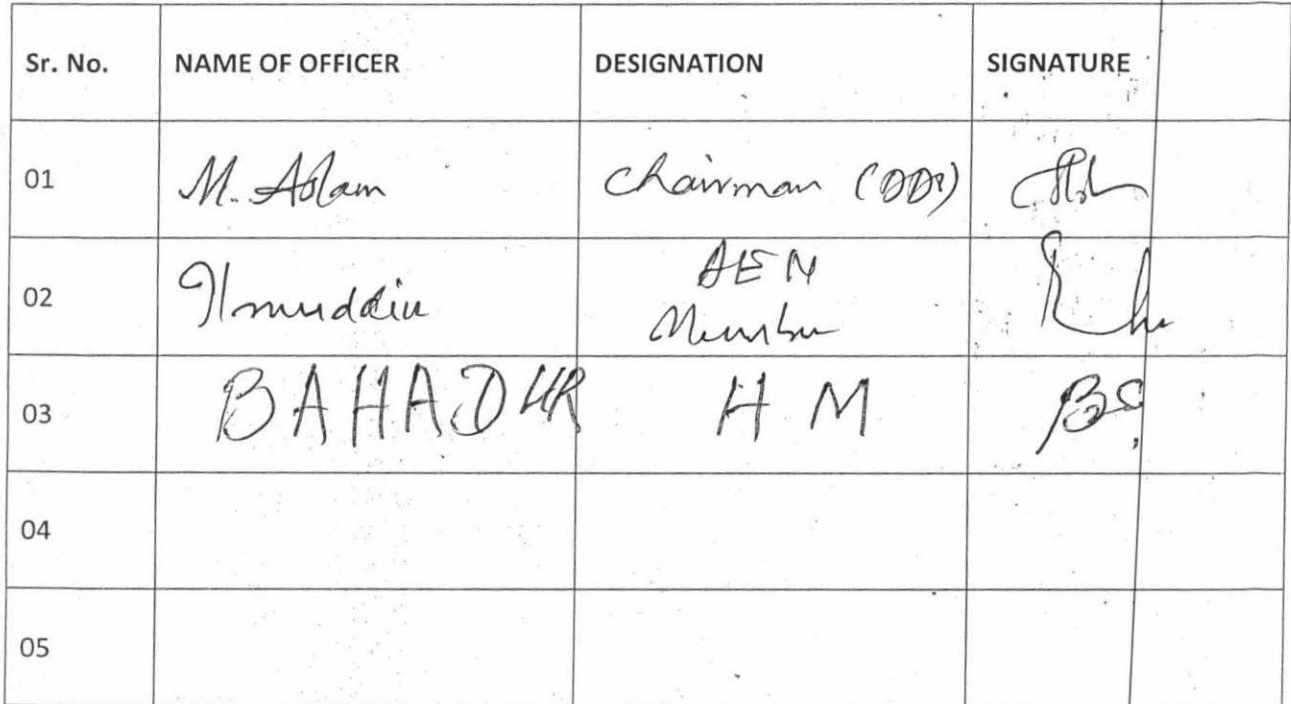 Sr. No. NAME OF OFFICER DESIGNATION SIGNATURE
01 M. Aslam Chairman
02 Ilmuddin AEN
Member
03 BAHADUR HM BS
04
05